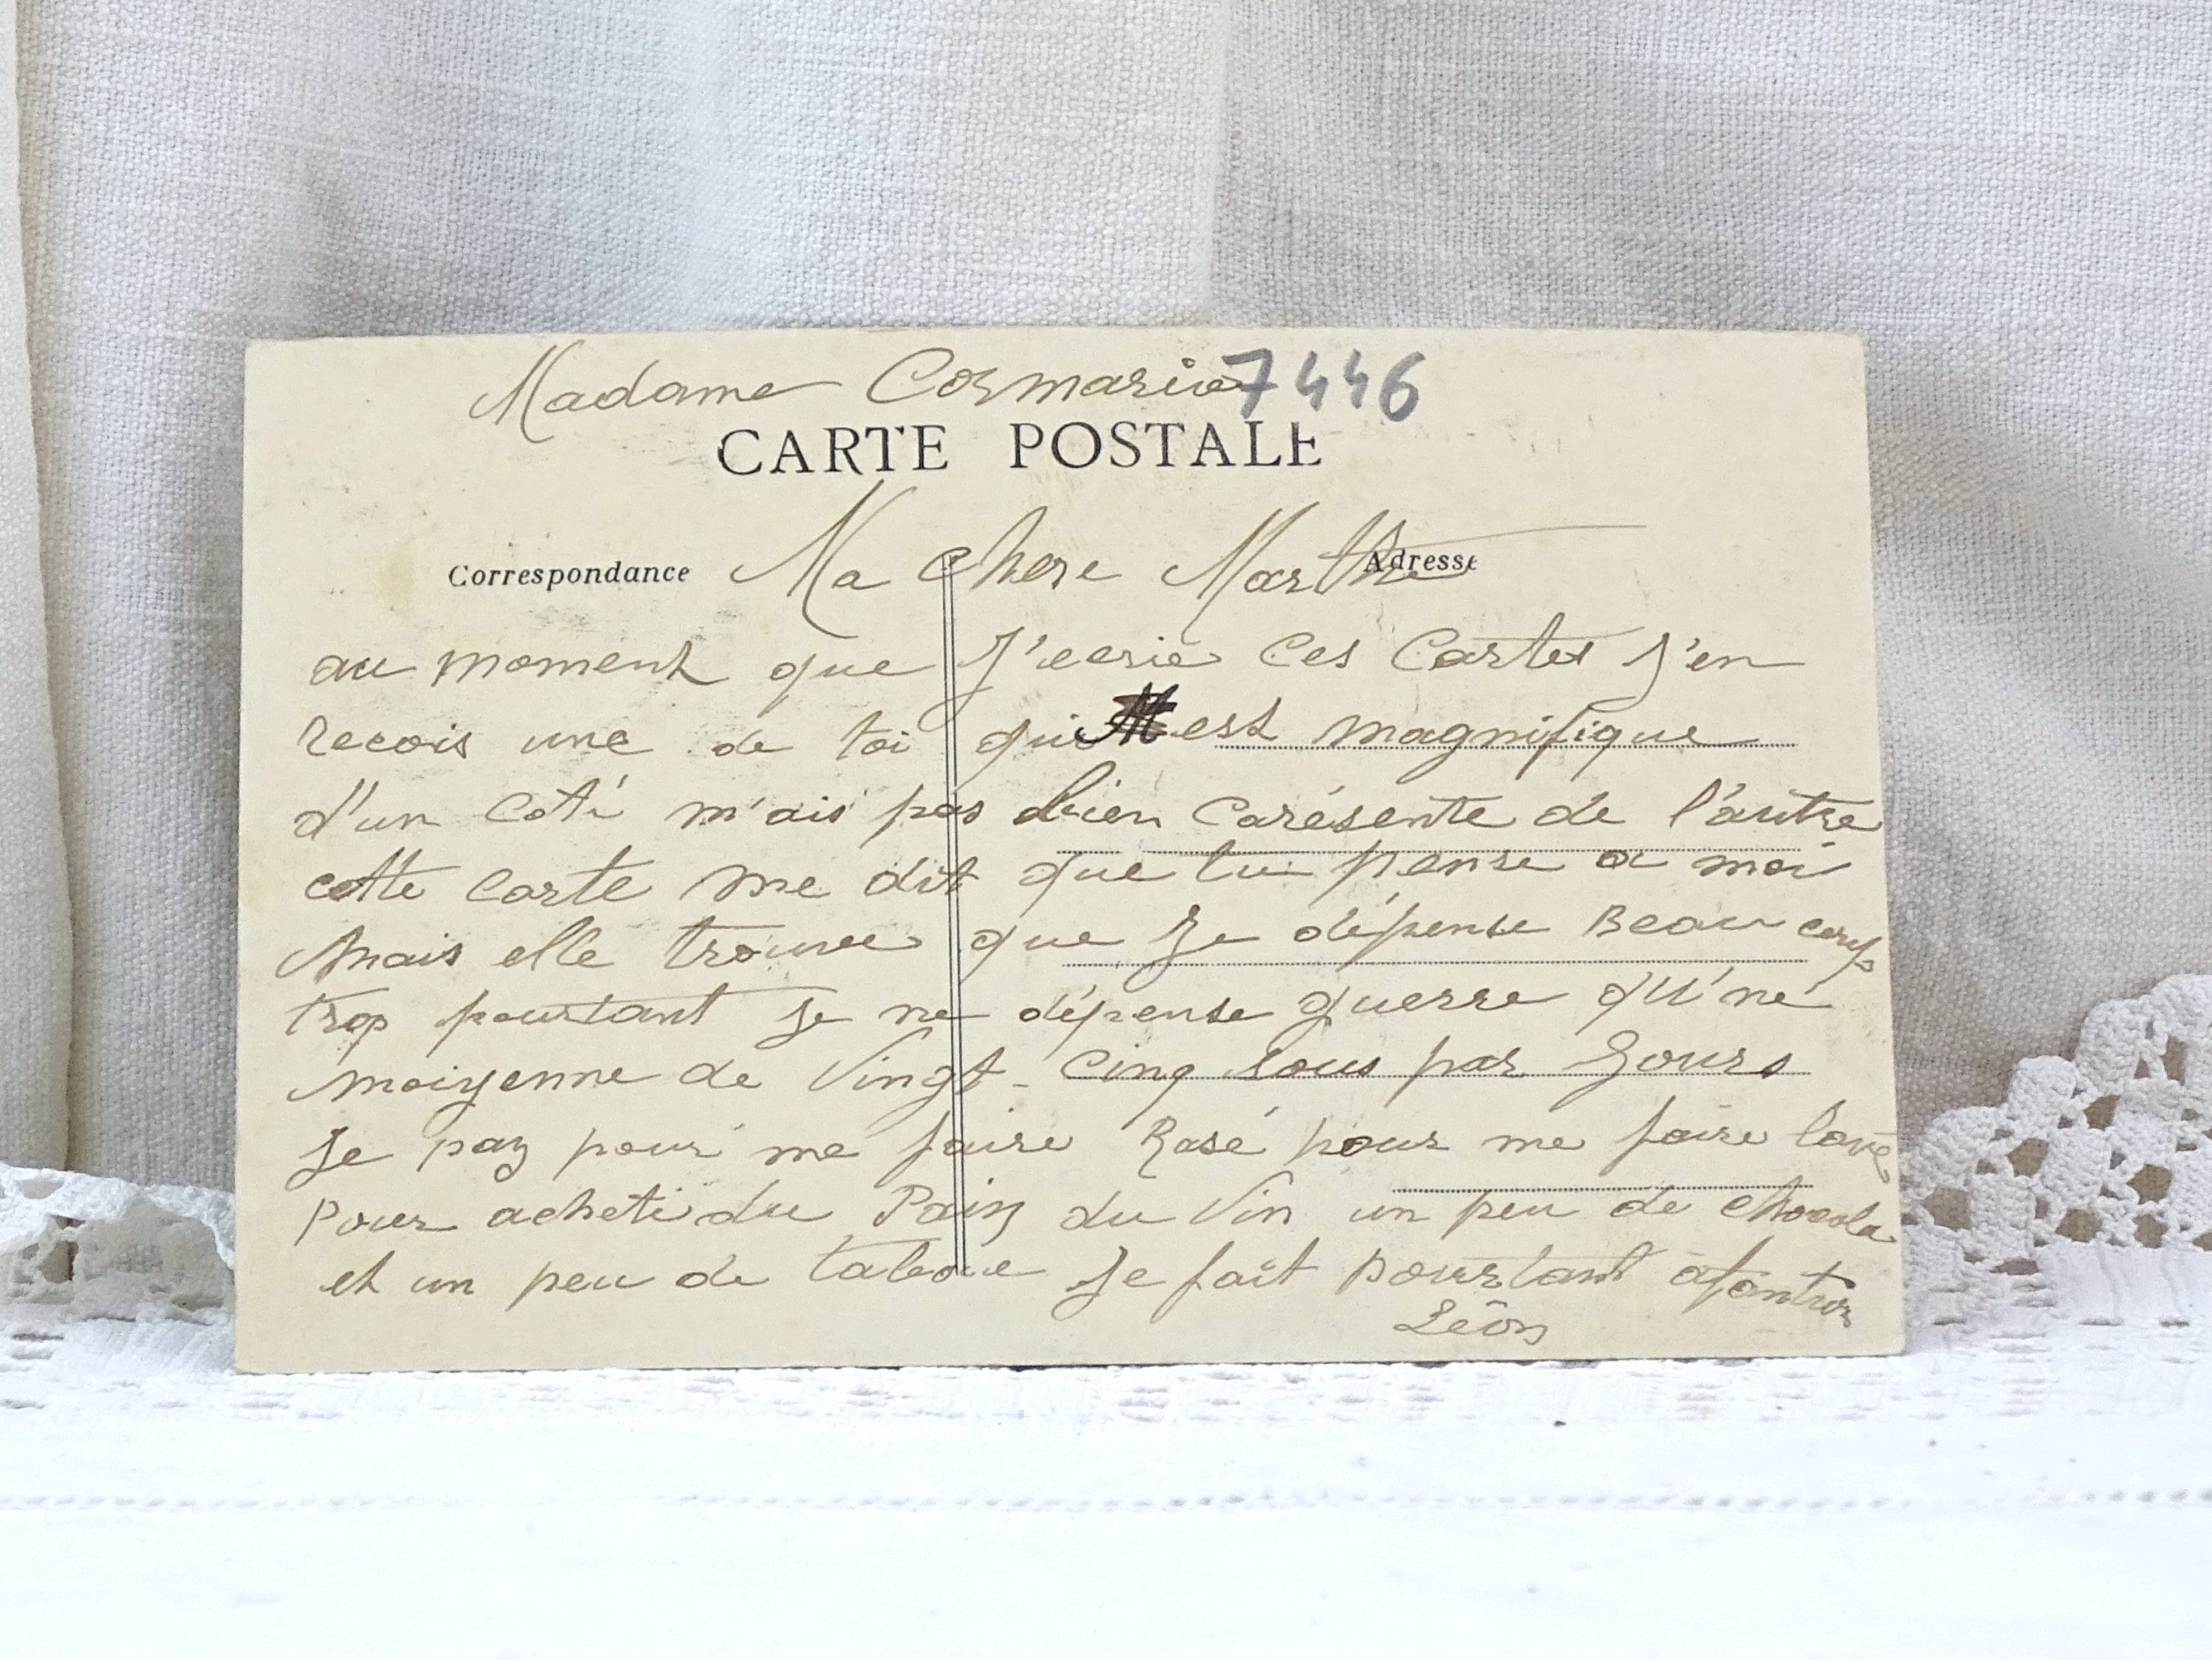 Madame Cormarie 7446
CARTE POSTALE
Correspondance Ma chere Marthe Adresse
au moment que J'ecrie Ces Cartes J'en
recois une de toi qui est magnifique
d'un coté m'ais pas bien Carésente de l'autre
cette carte me dit que tu pense a moi
Mais elle trouve que Je dépense Beaucoup
trop pourtant Je ne dépense guerre qu'ne
moiyenne de Vingt-Cinq sous par Jours
Je pay pour me faire Rasé pour me faire lavé
Pour acheté du Pain du Vin un peu de Chocola
et un peu de tabac Je fait pourtant atantion
Léon